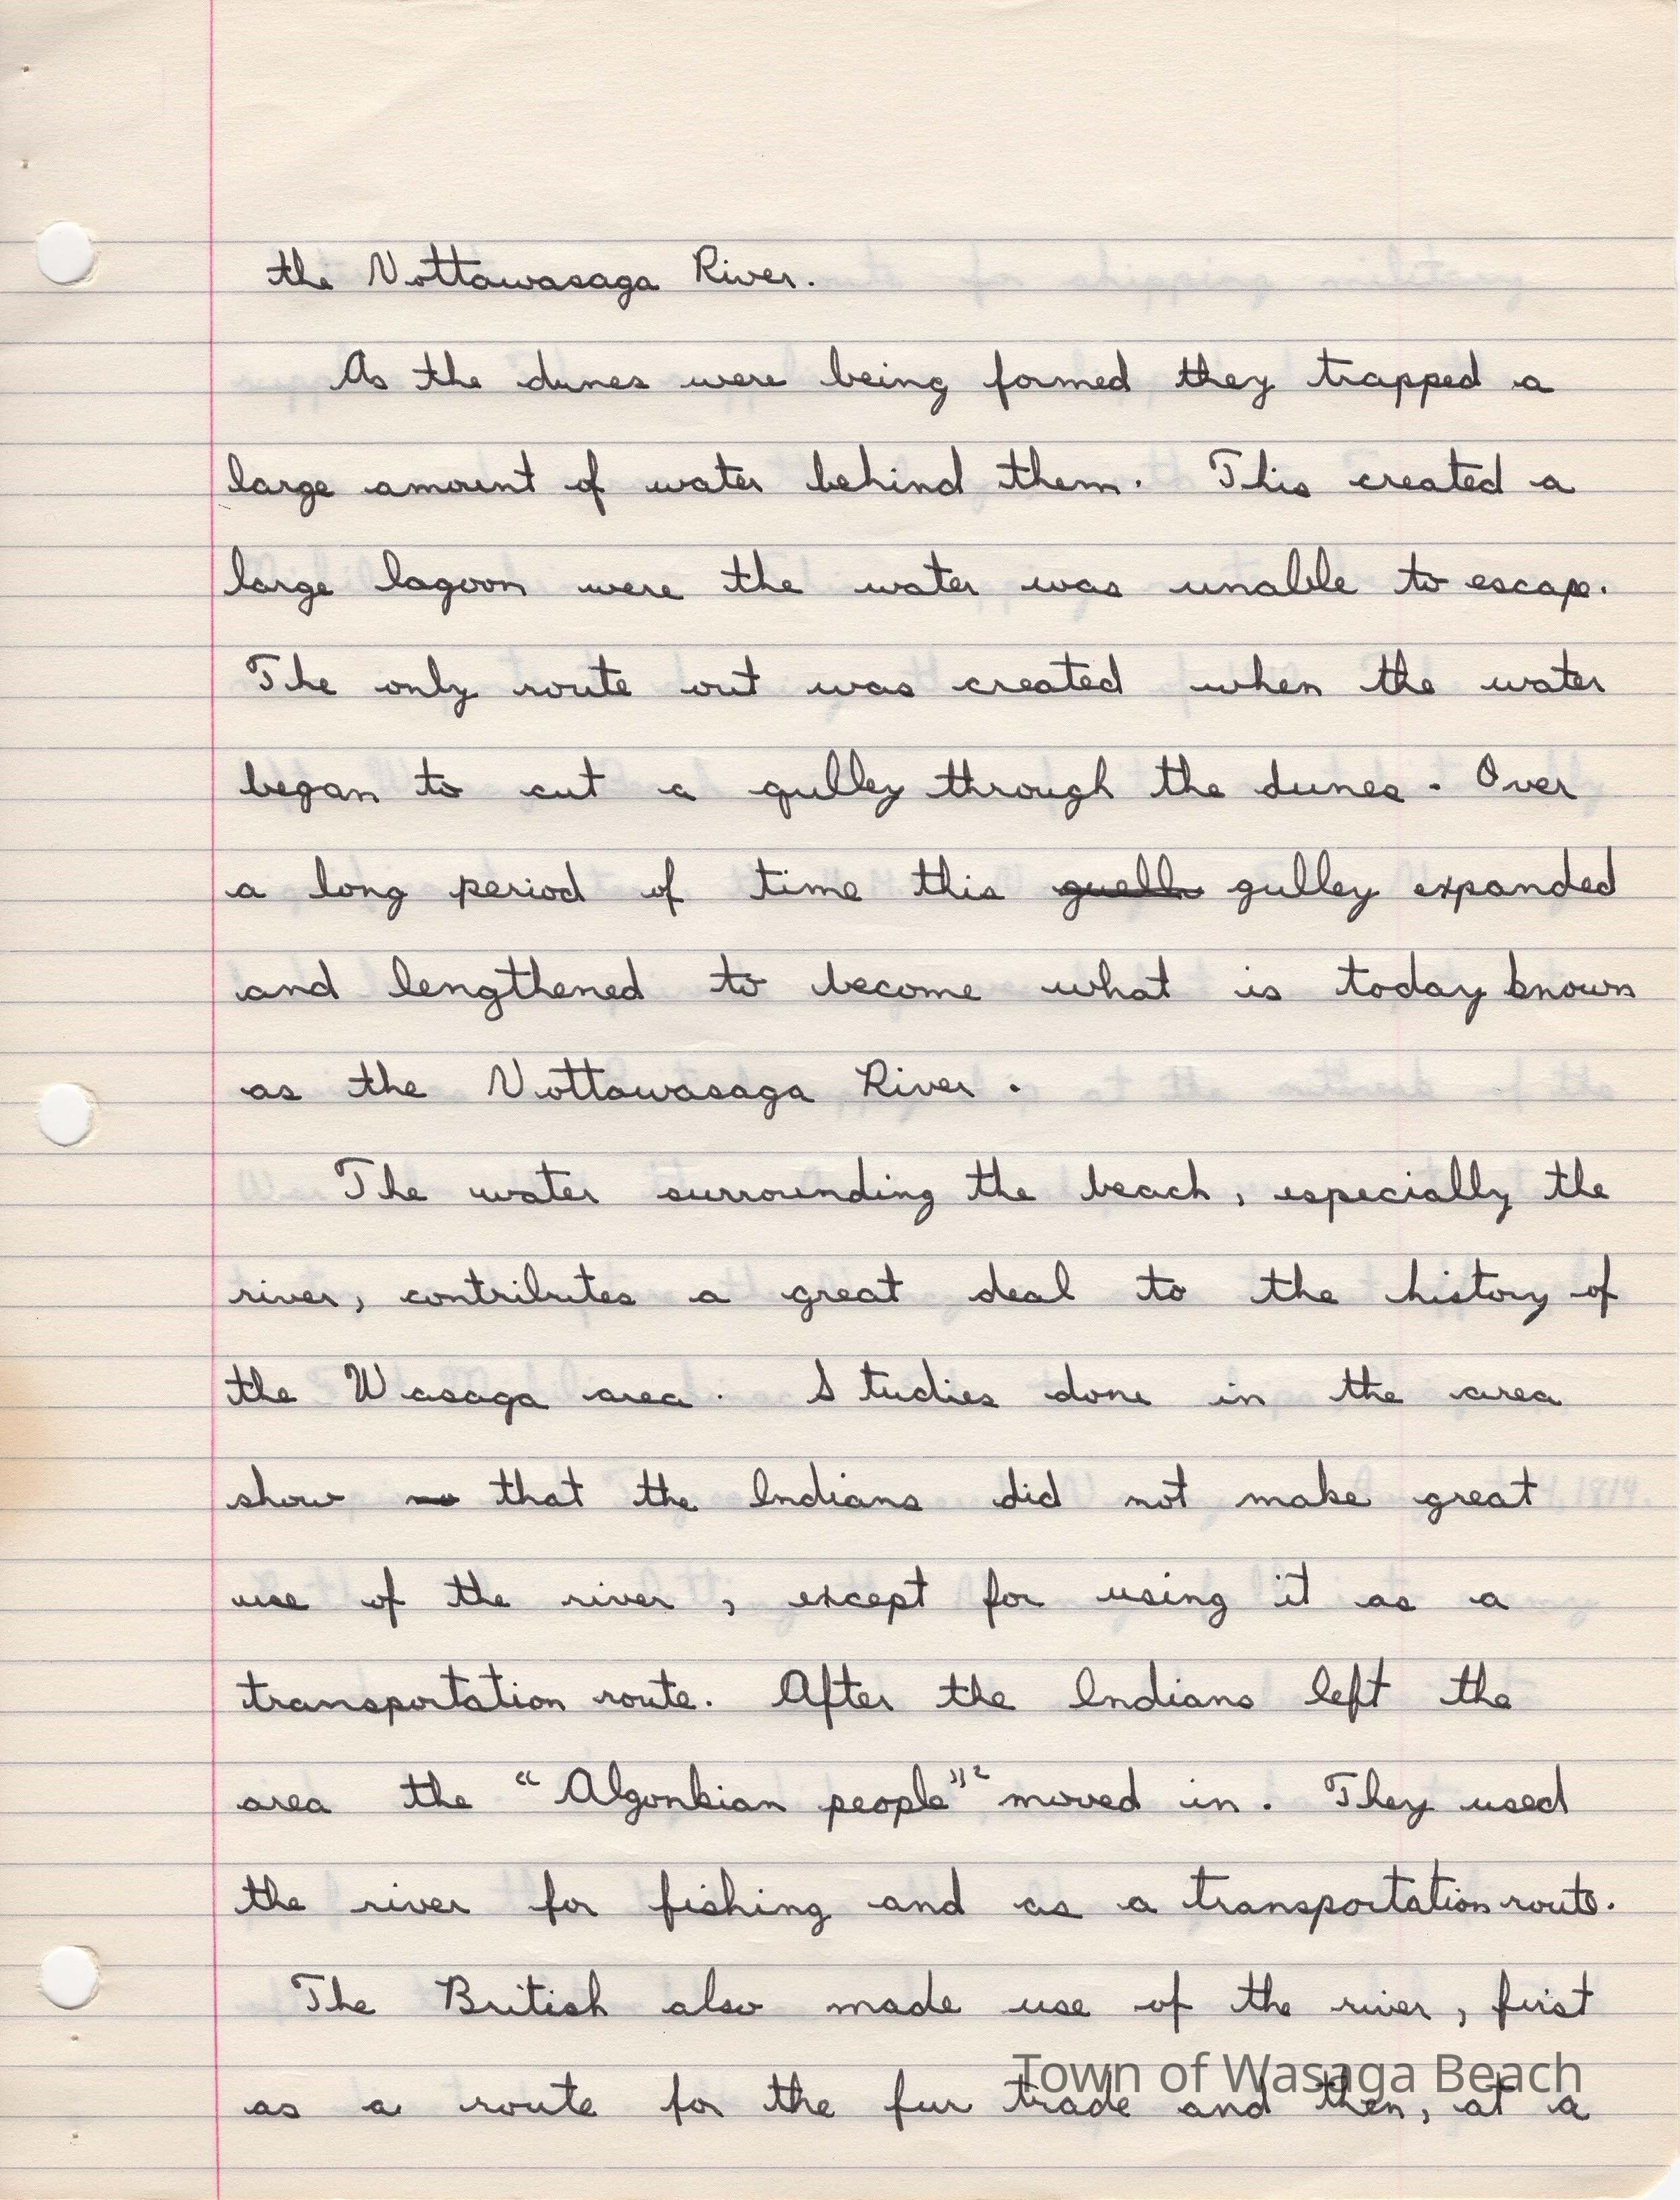 the Nottawasaga River.
As the dunes were being formed they trapped a
large amount of water behind them. This created a
large lagoon were the water was unable to escape.
The only route out was created when the water
began to cut a gulley through the dunes. Over
a long period of time this gulley expanded
and lengthened to become what is today known
as the Nottawasaga River.
The water surrounding the beach, especially the
river, contributes a great deal to the history of
the Wasaga area. Studies done in the area
show that the Indians did not make great
use of the river, except for using it as a
transportation route. After the Indians left the
area the "Algonkian people"² moved in. They used
the river for fishing and as a transportation route.
The British also made use of the river, first
Town of Wasaga Beach
as a route for the fur trade and then, at a